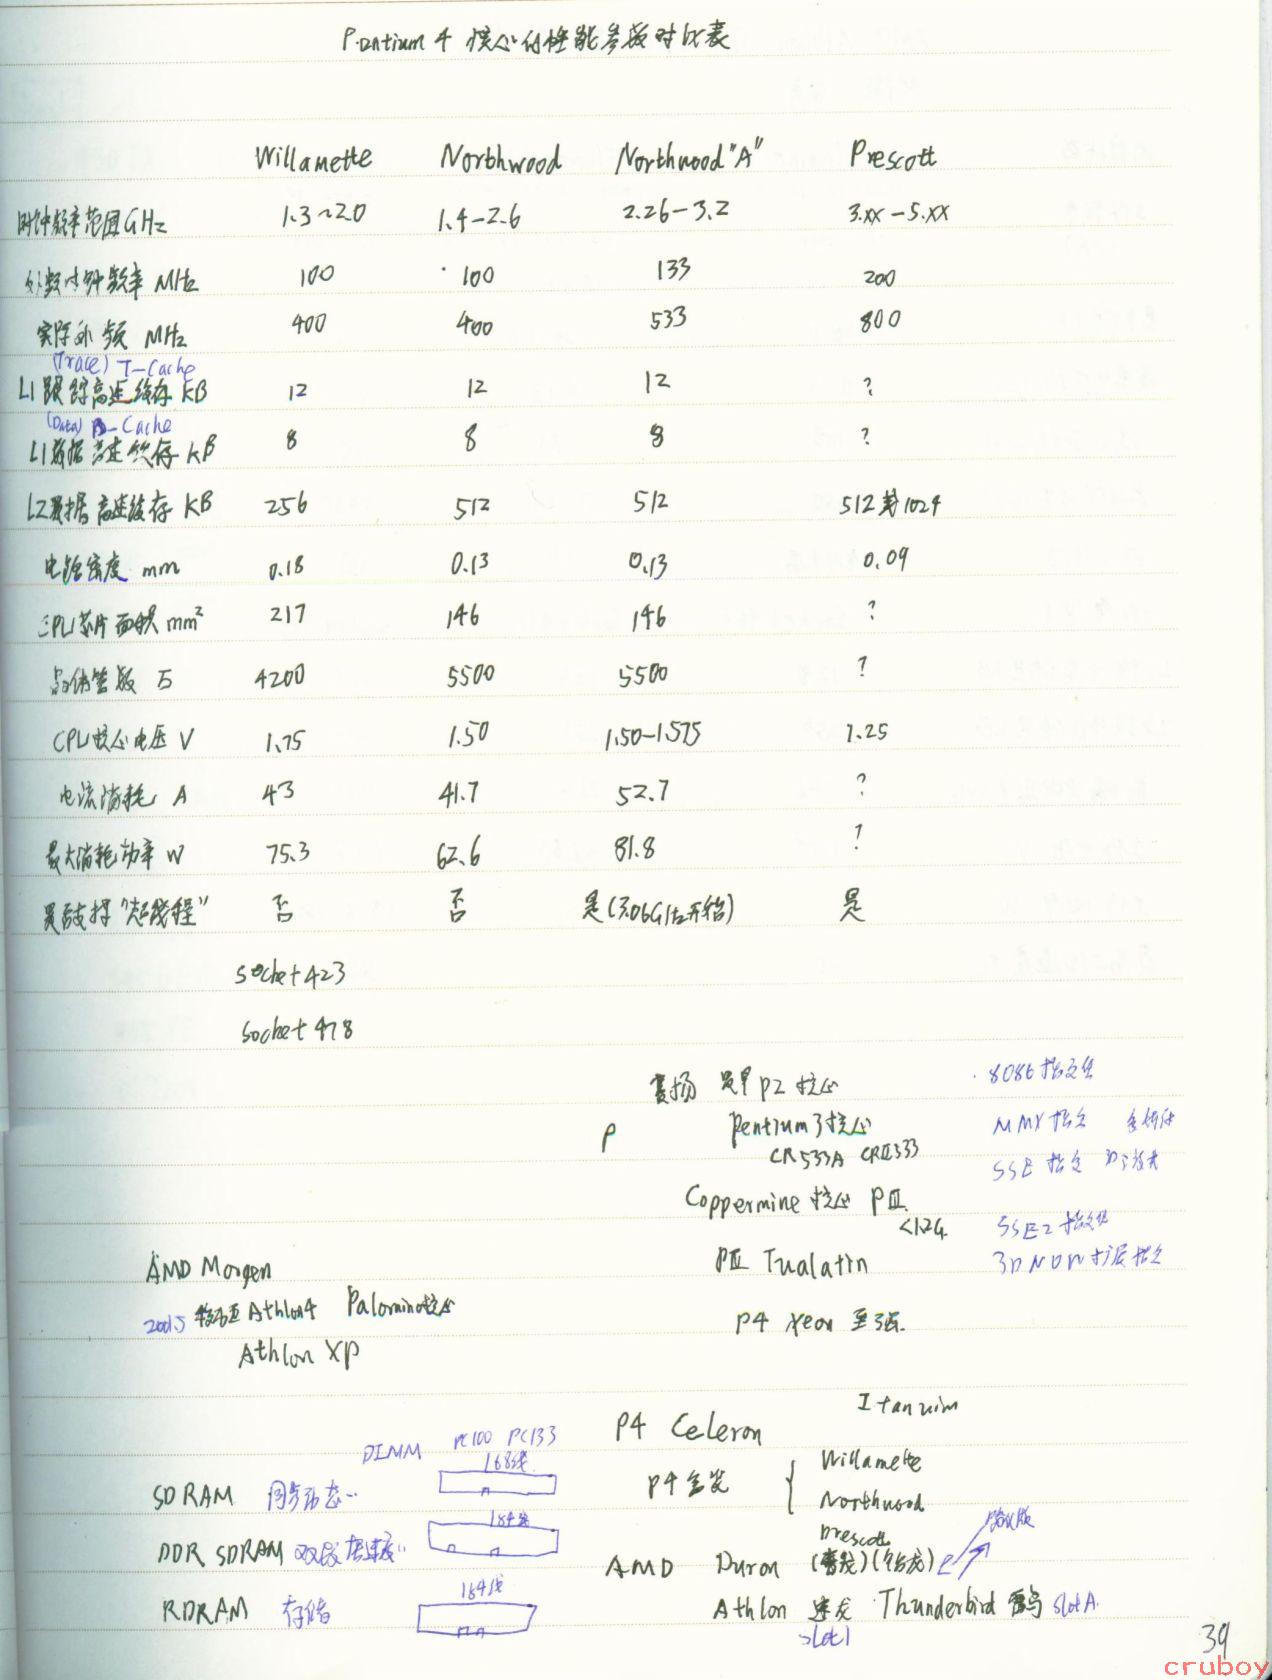 Pentium 4 核心的性能参数对比表
Willamette Northwood Northwood"A" Prescott
时钟频率范围GHz 1.3~2.0 1.4-2.6 2.26-3.2 3.XX-5.XX
外频时钟频率 MHz 100 100 133 200
实际外频 MHz 400 400 533 800
(Trace) T-Cache
L1跟踪高速缓存 KB 12 12 12 ?
(Data) D-Cache
L1数据高速缓存 KB 8 8 8 ?
L2数据高速缓存 KB 256 512 512 512或1024
电路密度 mm 0.18 0.13 0.13 0.09
CPU芯片面积 mm² 217 146 146 ?
晶体管数 万 4200 5500 5500 ?
CPU核心电压 V 1.75 1.50 1.50-1.575 1.25
电流消耗 A 43 41.7 52.7 ?
最大消耗功率 W 75.3 62.6 81.8 ?
是否支持"超线程" 否 否 是(3.06GHz开始) 是
Socket 423
Socket 478
赛扬 最早P2核心 8086指令集
P Pentium3核心 MMX指令 多媒体
CR533A CRII333
SSE 指令
Coppermine 核心 PIII
<1.2G SSE2 指令集
PIII Tualatin 3D NOW扩展指令
AMD Morgen
2001.5 Athlon4 Palomino核心
P4 Xeon 至强
Athlon XP
Itanuim
P4 Celeron
DIMM PC100 PC133
168线
Willamette
P4 Northwood
SDRAM 同步动态..
184线
Prescott
DDR SDRAM 双数据速度..
AMD Duron (毒龙)(钻龙)
184线
RDRAM 存储
Athlon 速龙 Thunderbird 雷鸟 slot A
slot1
39
cruboy